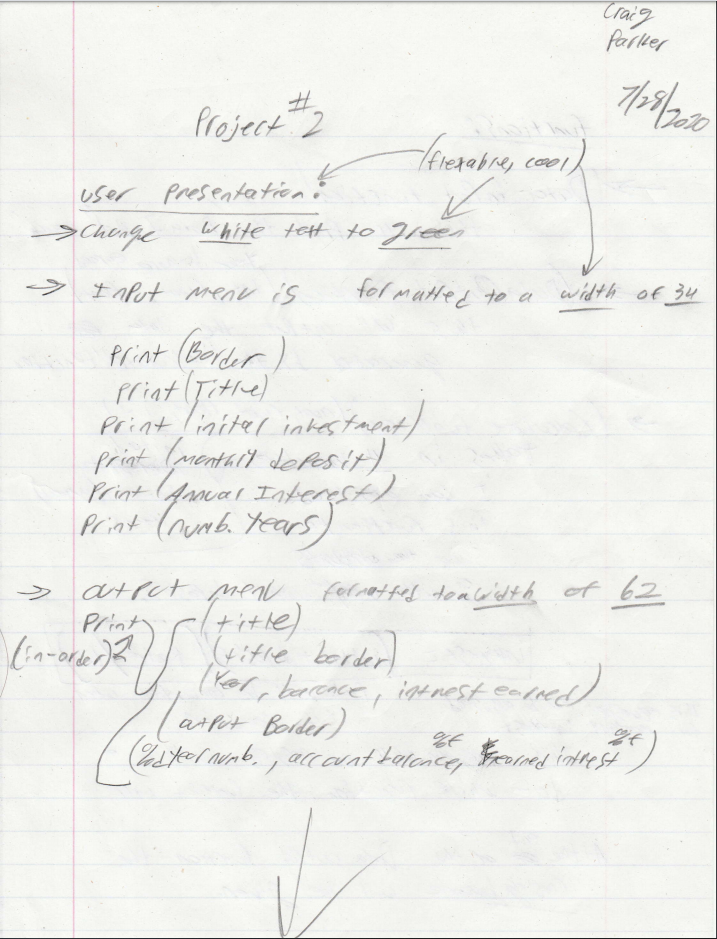 Craig
Parker
7/28/2020
Project #2
(flexable, cool)
user presentation:
→ Change white text to green
→ Input menu is formatted to a width of 34
print (Border)
print (Title)
print (inital investment)
print (monthly deposit)
Print (Annual Interest)
Print (numb. Years)
→ output menu formatted to a width of 62
Print (title)
(in-order) (title border)
(Year, balance, intrest earned)
(output Border)
(%d year numb., account balance %f, earned intrest %f)